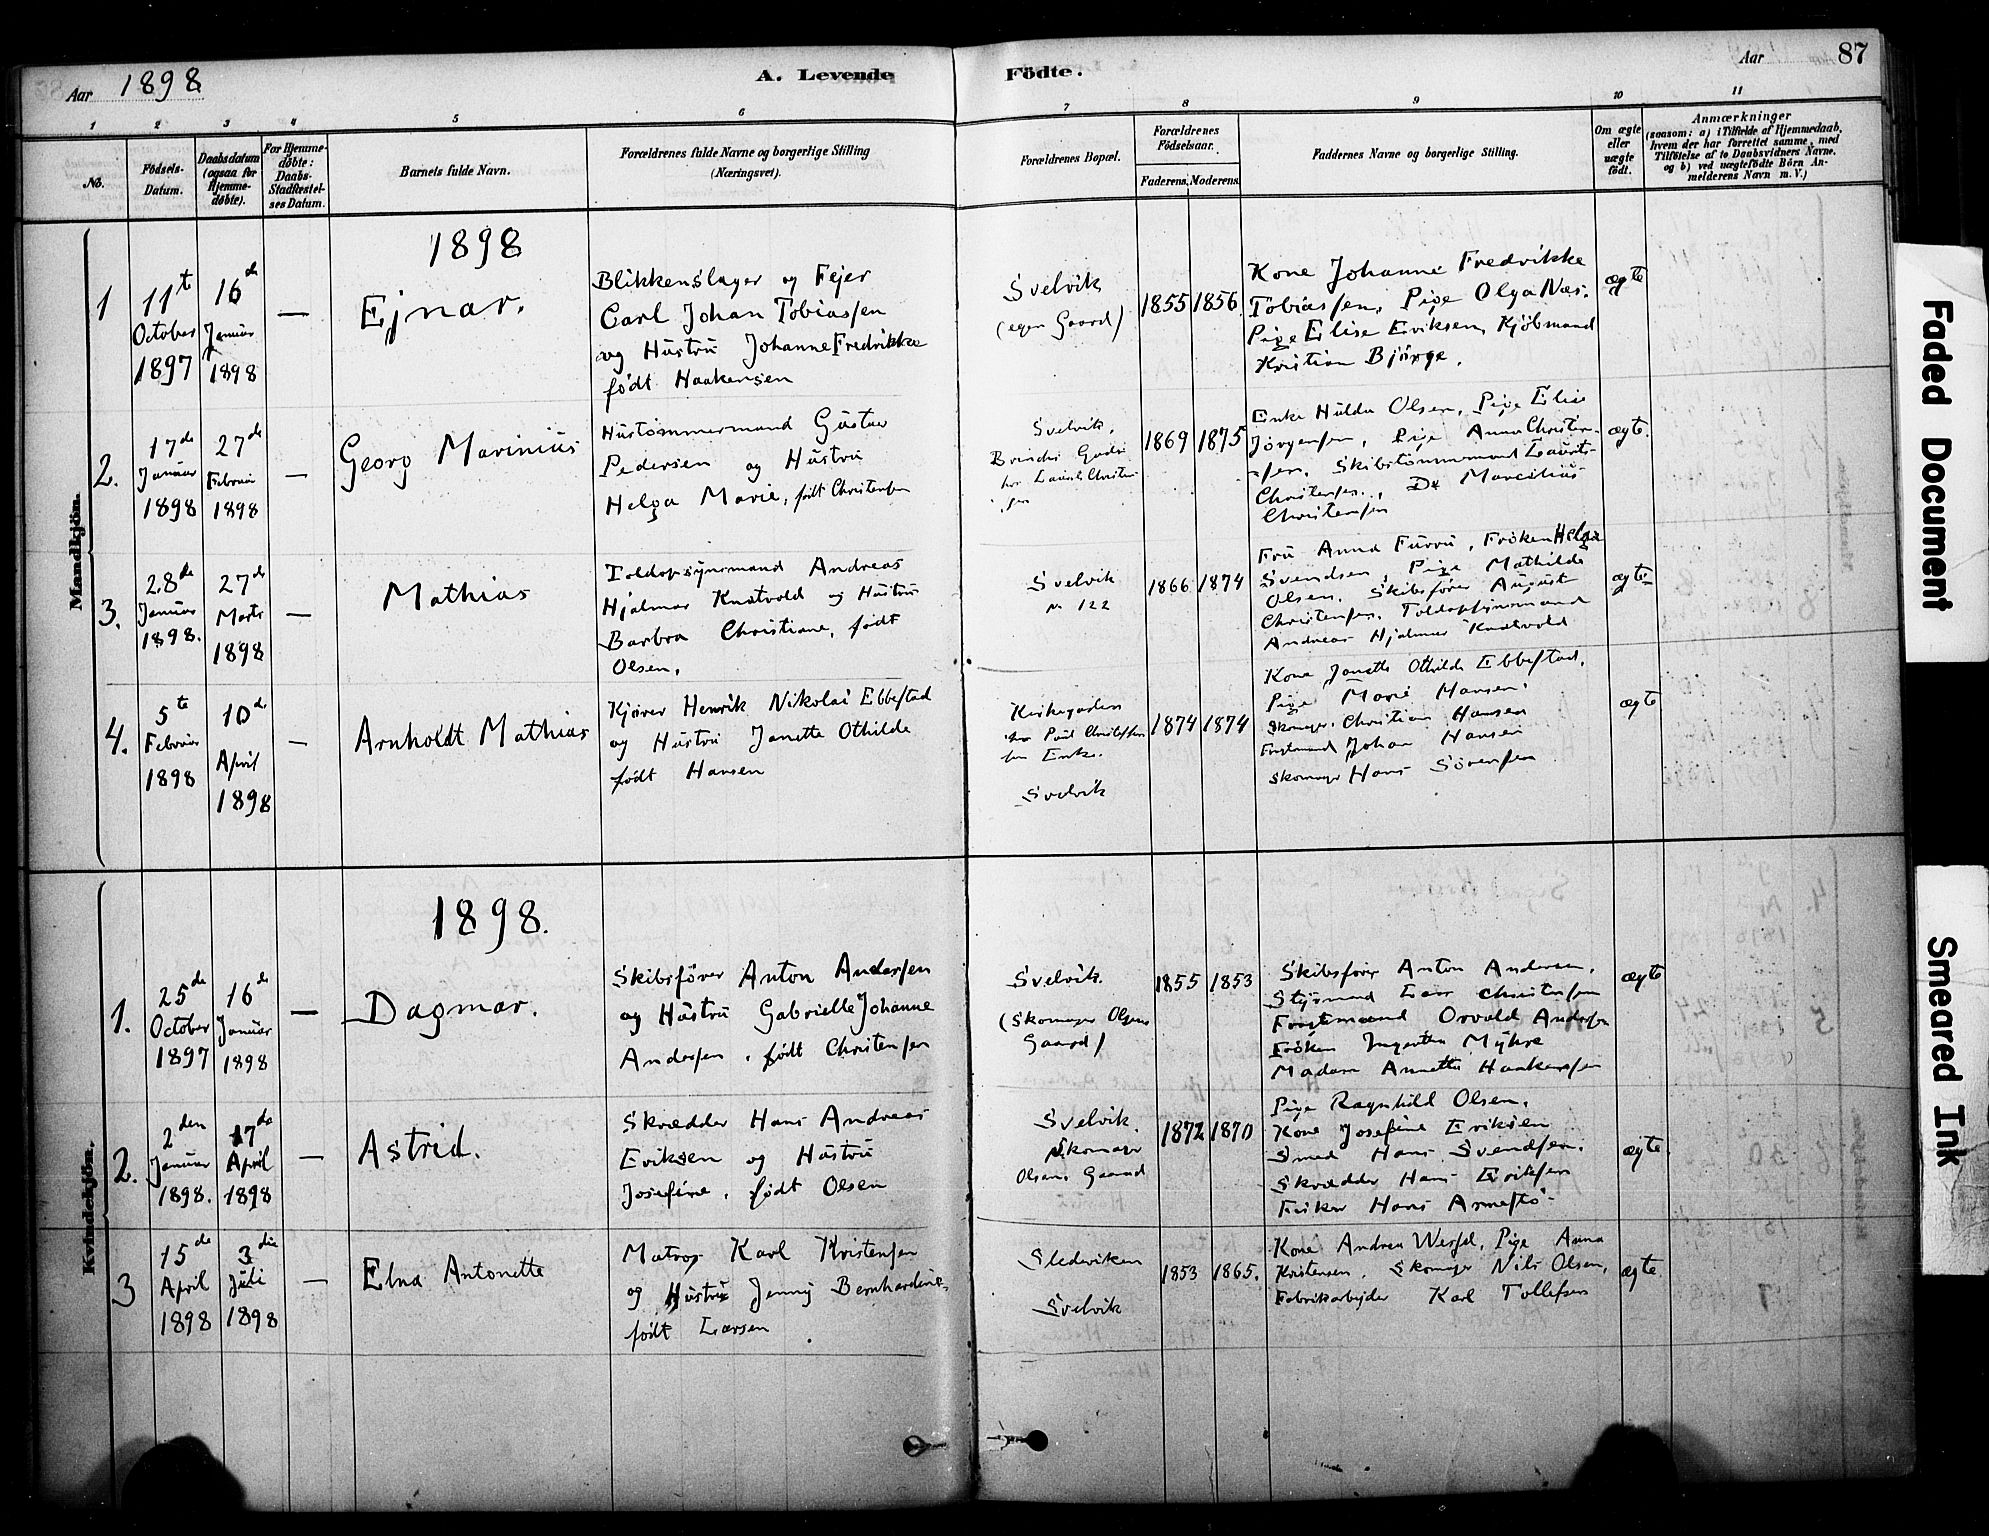 Aar 1898
A. Levende Födte.
Aar 87
1 2 3 4 5 6 7 8 9 10 11
No.
Födsels-
Datum.
Daabsdatum
(ogsaa for
Hjemme-
döbte).
For Hjemme-
döbte:
Daabs-
Stadfæstel-
ses Datum.
Barnets fulde Navn.
Forældrenes fulde Navne og borgerlige Stilling
(Næringsvei).
Forældrenes Bopæl.
Forældrenes
Födselsaar.
Faderens. Moderens.
Faddernes Navne og borgerlige Stilling.
Om ægte
eller
uægte
födt.
Anmærkninger
(saasom: a) i Tilfælde af Hjemmedaab,
hvem der har forrettet samme, med
Tilföielse af to Daabsvidners Navne,
og b) ved uægtefödte Börn An-
melderens Navn m. V.)
Mandkjön.
1898
1
11t
October
1897
16de
Januar
1898
—
Ejnar.
Blikkenslager og Fejer
Carl Johan Tobiassen
og Hustru Johanne Fredrikke
født Haakensen
Svelvik
(egen Gaard)
1855 1856.
Kone Johanne Fredrikke
Tobiassen, Pige Olga Næs.
Pige Elise Eriksen, Kjøbmand
Kristian Bjørge.
ægte
2.
17de
Januar
1898
27de
Februar
1898
—
Georg Marinius
Hustømmermand Gustav
Pedersen og Hustru
Helga Marie, født Christensen
Svelvik.
1869 1875
Enke Hulda Olsen, Pige Elise
Jørgensen, Pige Anna Christen-
-sen, Skibstømmermand Laurits
Christensen, Do Marcilius
Christensen
ægte.
3.
28de
Januar
1898.
27de
Marts
1898
—
Mathias
Toldopsynsmand Andreas
Hjalmar Knatvold og Hustru
Barbra Christiane, født
Olsen.
Svelvik
No 122
1866 1874
Fru Anna Furru, Frøken Helga
Svendsen, Pige Mathilde
Olsen, Skibsfører August
Christensen, Toldopsynsmand
Andreas Hjalmar Knatvold
ægte
4.
5te
Februar
1898
10de
April
1898
—
Arnholdt Mathias
Kjører Henrik Nikolai Ebbestad
og Hustru Janette Othilde
født Hansen
Kirkegaden
Enke.
Svelvik
1874 1874
Kone Janette Othilde Ebbestad.
Pige Marie Hansen
Skomager Christian Hansen
Johan Hansen
Skomager Hans Sörensen
ægte
Kvindekjön.
1898.
1.
25de
October
1897
16de
Januar
1898
—
Dagmar.
Skibsfører Anton Andersen
og Hustru Gabrielle Johanne
Andersen, født Christensen
Svelvik.
(Skomager Olsens
Gaard)
1855 1853
Skibsfører Anton Andersen,
Styrmand Lars Christensen
Osvald Andersen
Frøken Myhre
Madam Annette Haakensen
ægte
2.
2den
Januar
1898.
17de
April
1898
—
Astrid.
Skrædder Hans Andreas
Eriksen og Hustru
Josefine, født Olsen
Svelvik.
Skomager
Olsens Gaard
1872 1870
Pige Ragnhild Olsen,
Kone Josefine Eriksen
Smed Hans Svendsen.
Skrædder Hans Eriksen
Fisker Hans
ægte
3
15de
April
1898
3die
Juli
1898
—
Elna Antonette
Matros Karl Kristensen
og Hustru Jenny Bernhardine
født Larsen
Svelvik
1853 1865.
Kone Andrea Wessel, Pige Anna
Kristensen, Skomager Nils Olsen,
Fabrikarbejder Karl Tollefsen
ægte.
Faded Document
Smeared Ink